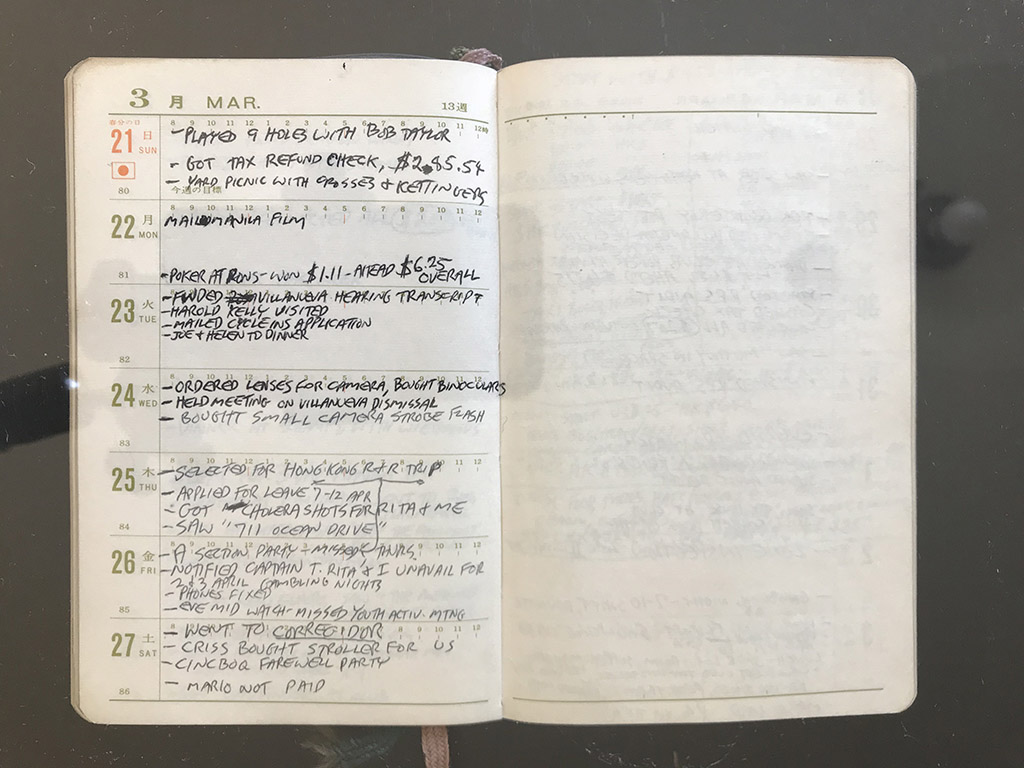 3 月 MAR.
13週
春分の日
8 9 10 11 12 1 2 3 4 5 6 7 8 9 10 11 12時
21 日 SUN
- PLAYED 9 HOLES WITH BOB TAYLOR
- GOT TAX REFUND CHECK,
- YARD PICNIC WITH GROSSES & KETTINGERS
80
今週の目標
22 月 MON
8 9 10 11 12 1 2 3 4 5 6 7 8 9 10 11 12
MAIL MANILA FILM
- POKER AT RONS - WON $1.11 - AHEAD $6.25
OVERALL
81
23 火 TUE
- VILLANUEVA HEARING TRANSCRIPT
- HAROLD KELLY VISITED
- MAILED CYCLE INS APPLICATION
- JOE & HELEN TO DINNER
82
24 水 WED
- ORDERED LENSES FOR CAMERA, BOUGHT BINOCULARS
- HELD MEETING ON VILLANUEVA DISMISSAL
- BOUGHT SMALL CAMERA STROBE FLASH
83
25 木 THU
- SELECTED FOR HONG KONG R & R TRIP
- APPLIED FOR LEAVE 7-12 APR
- GOT CHOLERA SHOTS FOR RITA & ME
- SAW "711 OCEAN DRIVE"
84
26 金 FRI
- A SECTION PARTY - MISSED THURS.
- NOTIFIED CAPTAIN T. RITA & I UNAVAIL FOR
2 & 3 APRIL GAMBLING NIGHTS
- PHONES FIXED
- EVE MID WATCH - MISSED YOUTH ACTIV. MTNG
85
27 土 SAT
- WENT TO CORREGIDOR
- CRISS BOUGHT STROLLER FOR US
- CINCBOQ FAREWELL PARTY
- MARIO NOT PAID
86